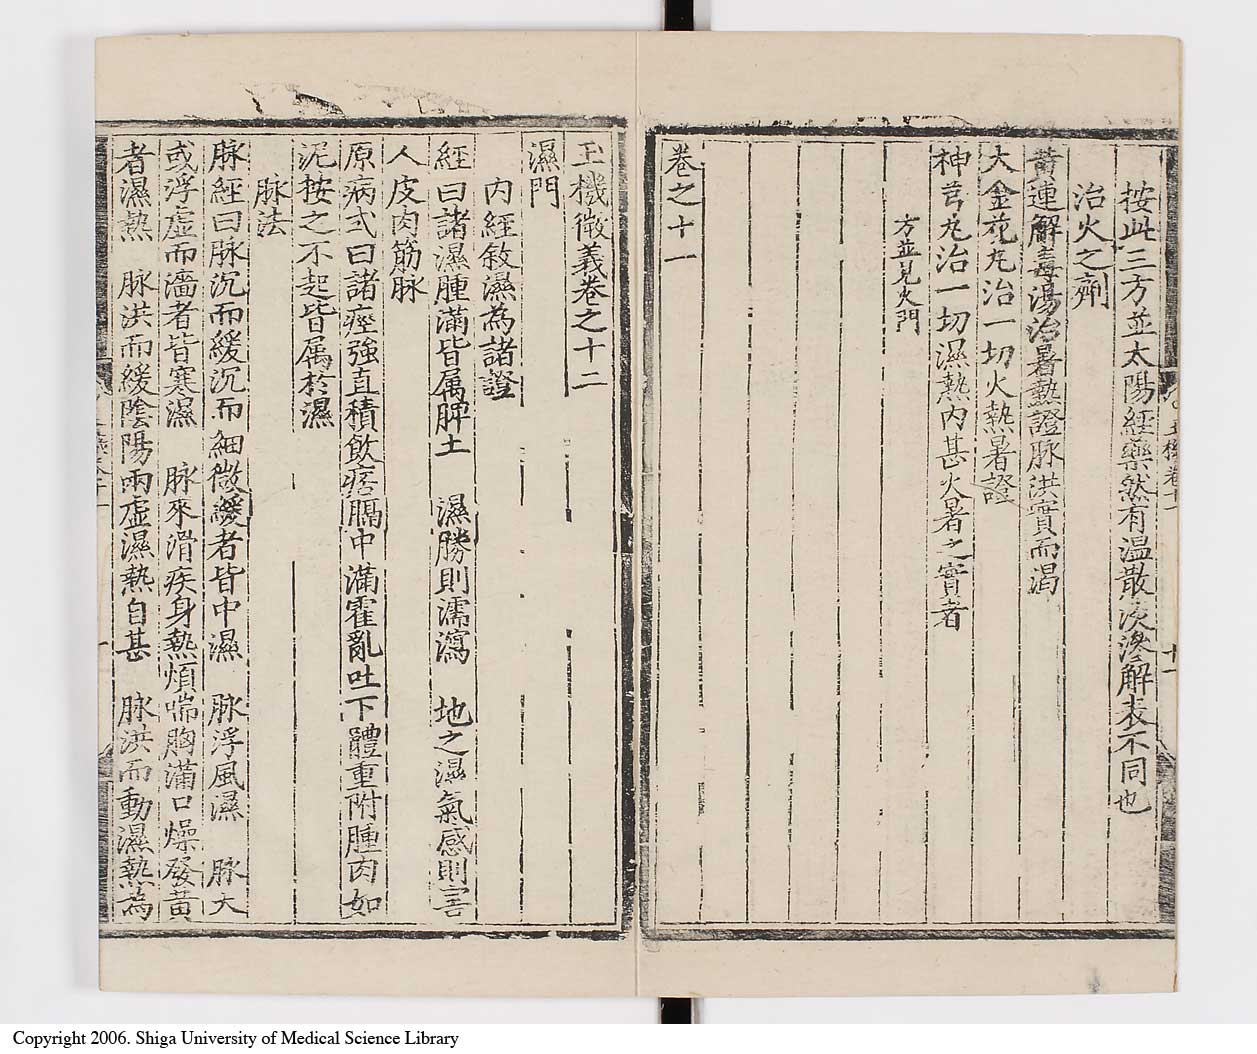 按此三方並太陽經藥然有温散淡滲解表不同也
治火之劑
黄連解毒湯治暑熱證脉洪實而渴
大金花丸治一切火熱暑證
神芎丸治一切濕熱内甚火暑之實者
方並見火門
卷之十一
玉機微義卷之十二
濕門
内經敘濕為諸證
經曰諸濕腫滿皆属脾土 濕勝則濡瀉 地之濕氣感則害
人皮肉筋脉
原病式曰諸痙強直積飲痞膈中滿霍亂吐下體重附腫肉如
泥按之不起皆属於濕
脉法
脉經曰脉沉而緩沉而細微緩者皆中濕 脉浮風濕 脉大
或浮虚而濇者皆寒濕 脉來滑疾身熱煩喘胸滿口燥發黄
者濕熱 脉洪而緩陰陽兩虚濕熱自甚 脉洪而動濕熱為
Copyright 2006. Shiga University of Medical Science Library